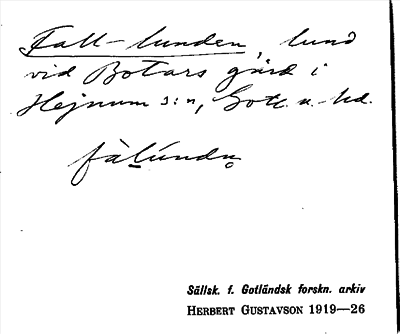 Fall-lunden, lund
vid Botars gård i
Hejnum s:n, Gotl. n. hd.
fàlúndn̥
Sällsk. f. Gotländsk forskn. arkiv
HERBERT GUSTAVSON 1919—26